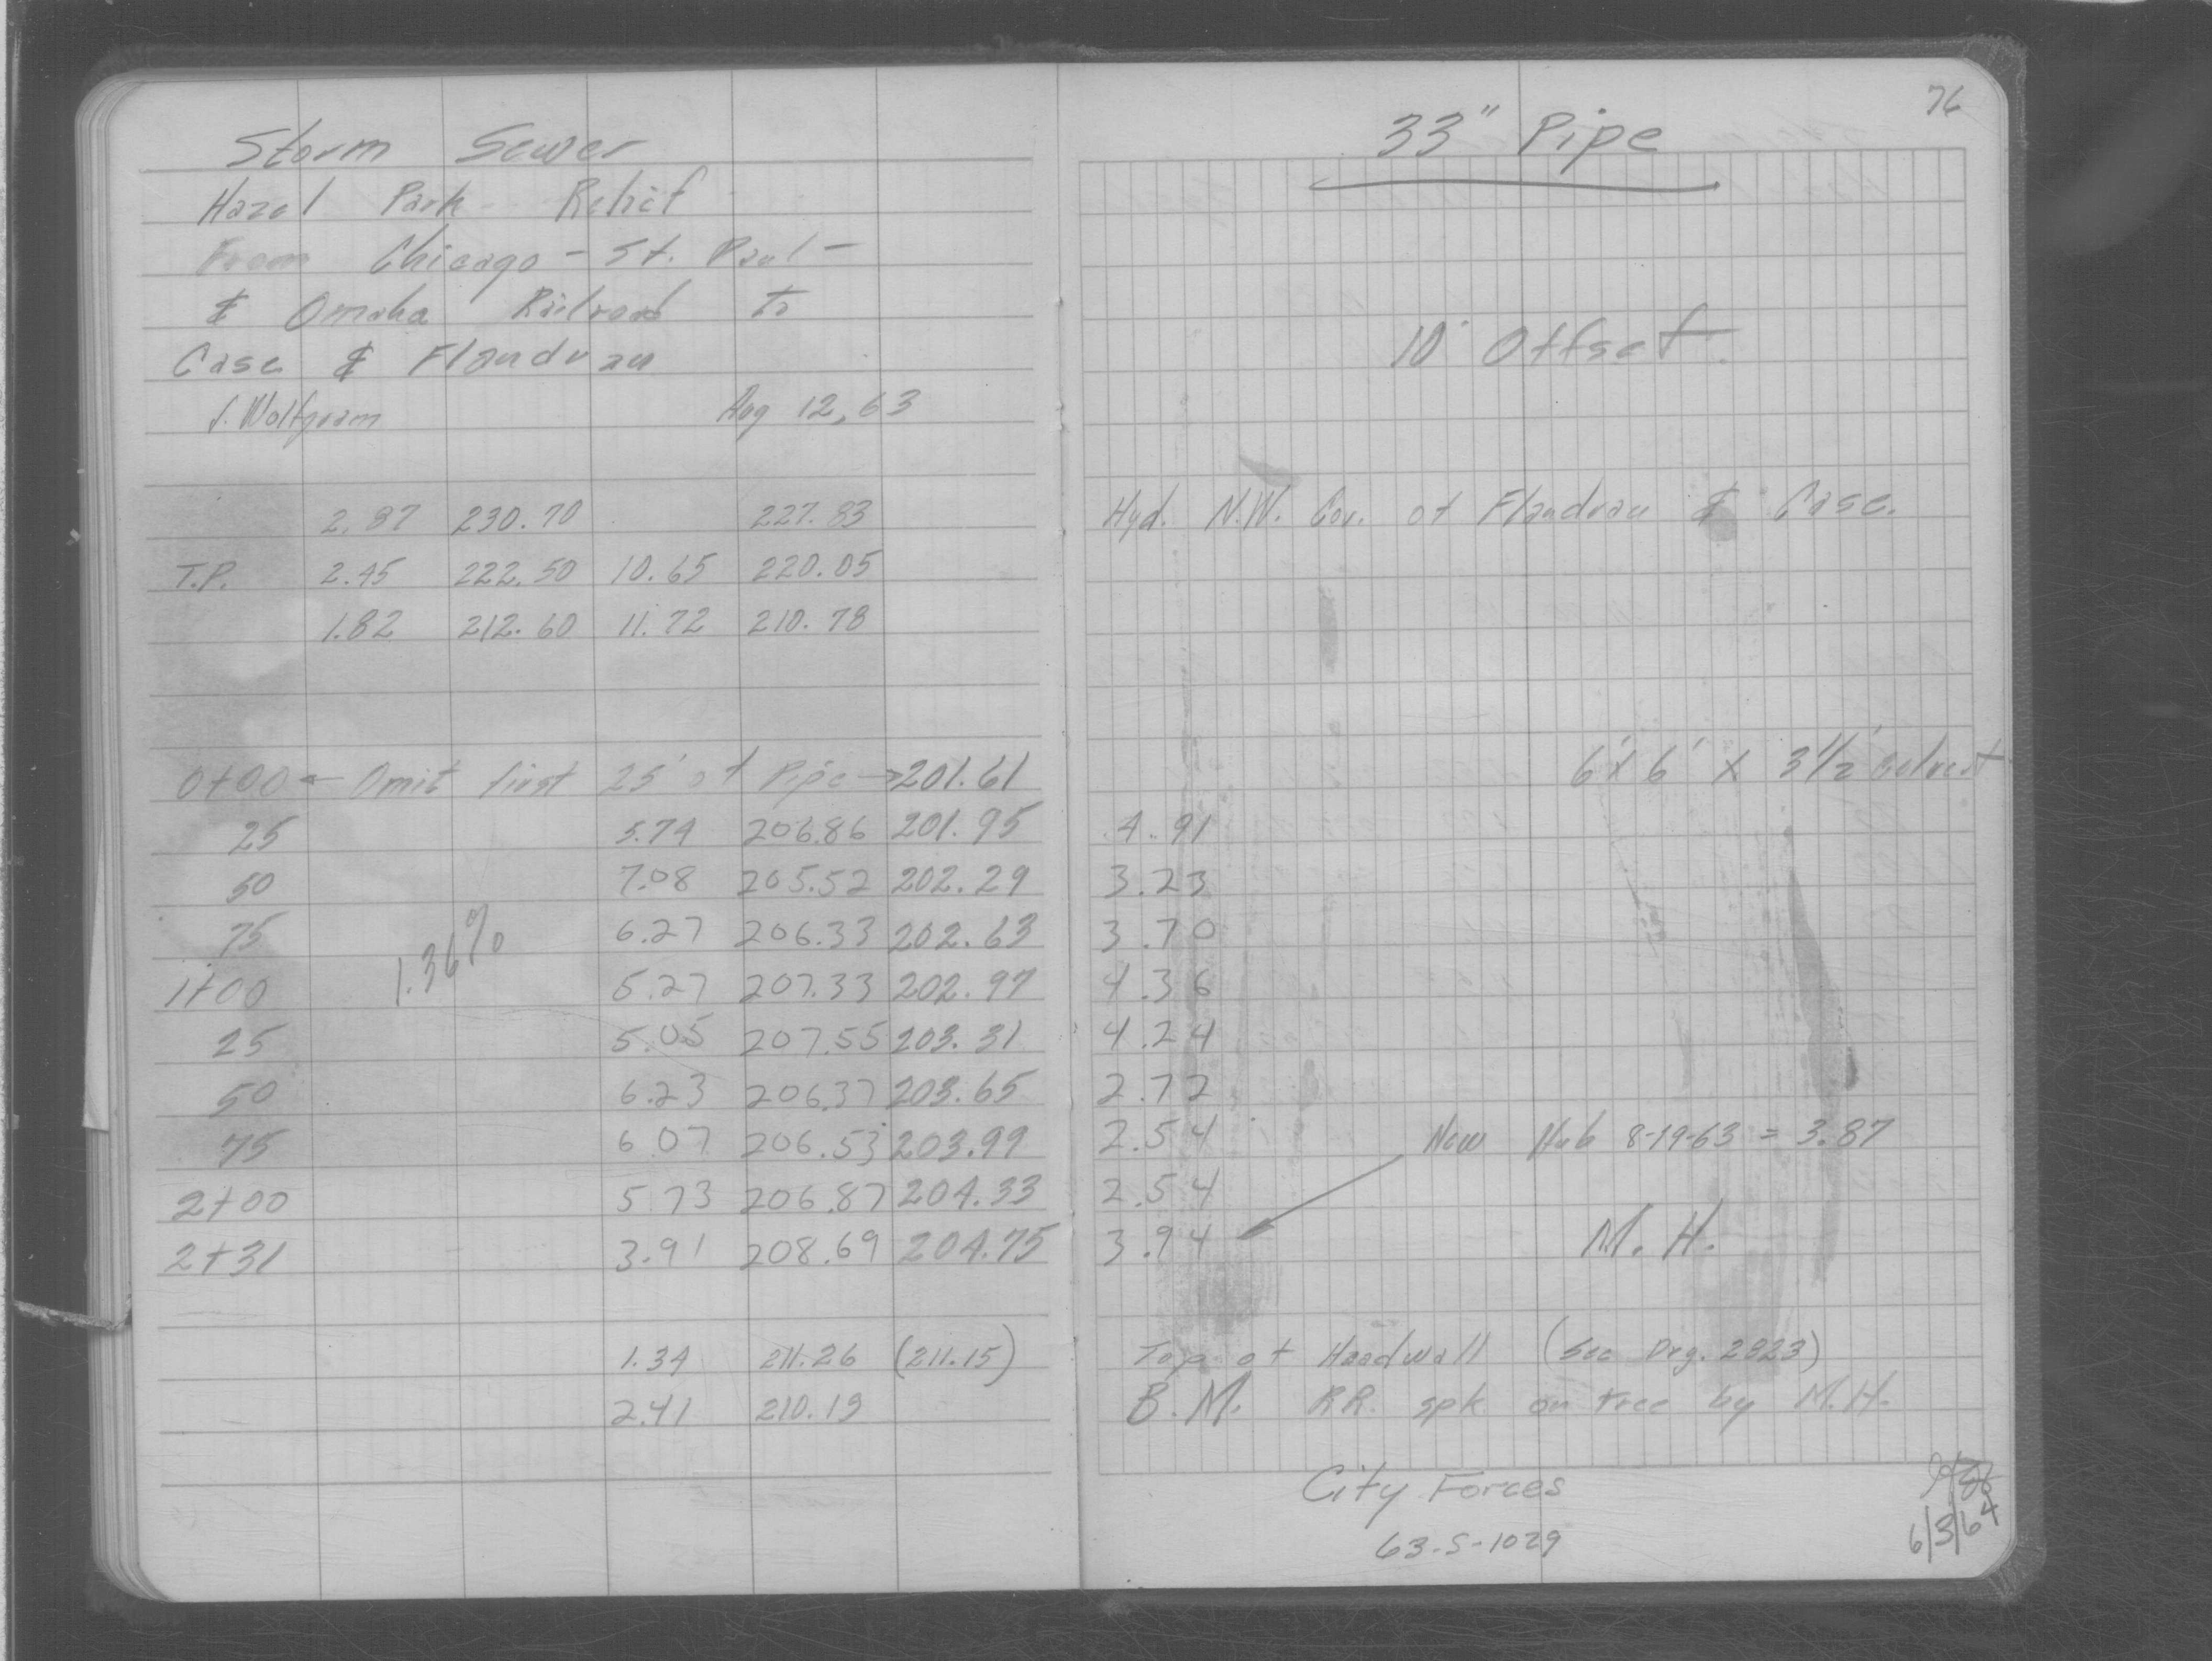 76
Storm Sewer
33" Pipe
Hazel Park Relief
From Chicago - St. Paul -
& Omaha Railroad to
10' Offset.
Case & Flandrau
J. Wolfgram Aug 12, 63
2.87 230.70 227.83 Hyd. N.W. Cor. of Flandrau & Case.
T.P. 2.45 222.50 10.65 220.05
1.82 212.60 11.72 210.78
0+00 ← Omit first 25' of Pipe → 201.61 6' x 6' x 3 1/2' Culvert
25 5.74 206.86 201.95 4.91
50 7.08 205.52 202.29 3.23
75 6.27 206.33 202.63 3.70
1.36%
1+00 5.27 207.33 202.97 4.36
25 5.05 207.55 203.31 4.24
50 6.23 206.37 203.65 2.72
75 6.07 206.53 203.99 2.54 New Hub 8-19-63 = 3.87
2+00 5.73 206.87 204.33 2.54
2+31 3.91 208.69 204.75 3.94 M.H.
1.34 211.26 (211.15) Top of Headwall (See Drg. 2823)
2.41 210.19 B.M. RR. spk on tree by M.H.
City Forces
63-S-1029
6/3/64